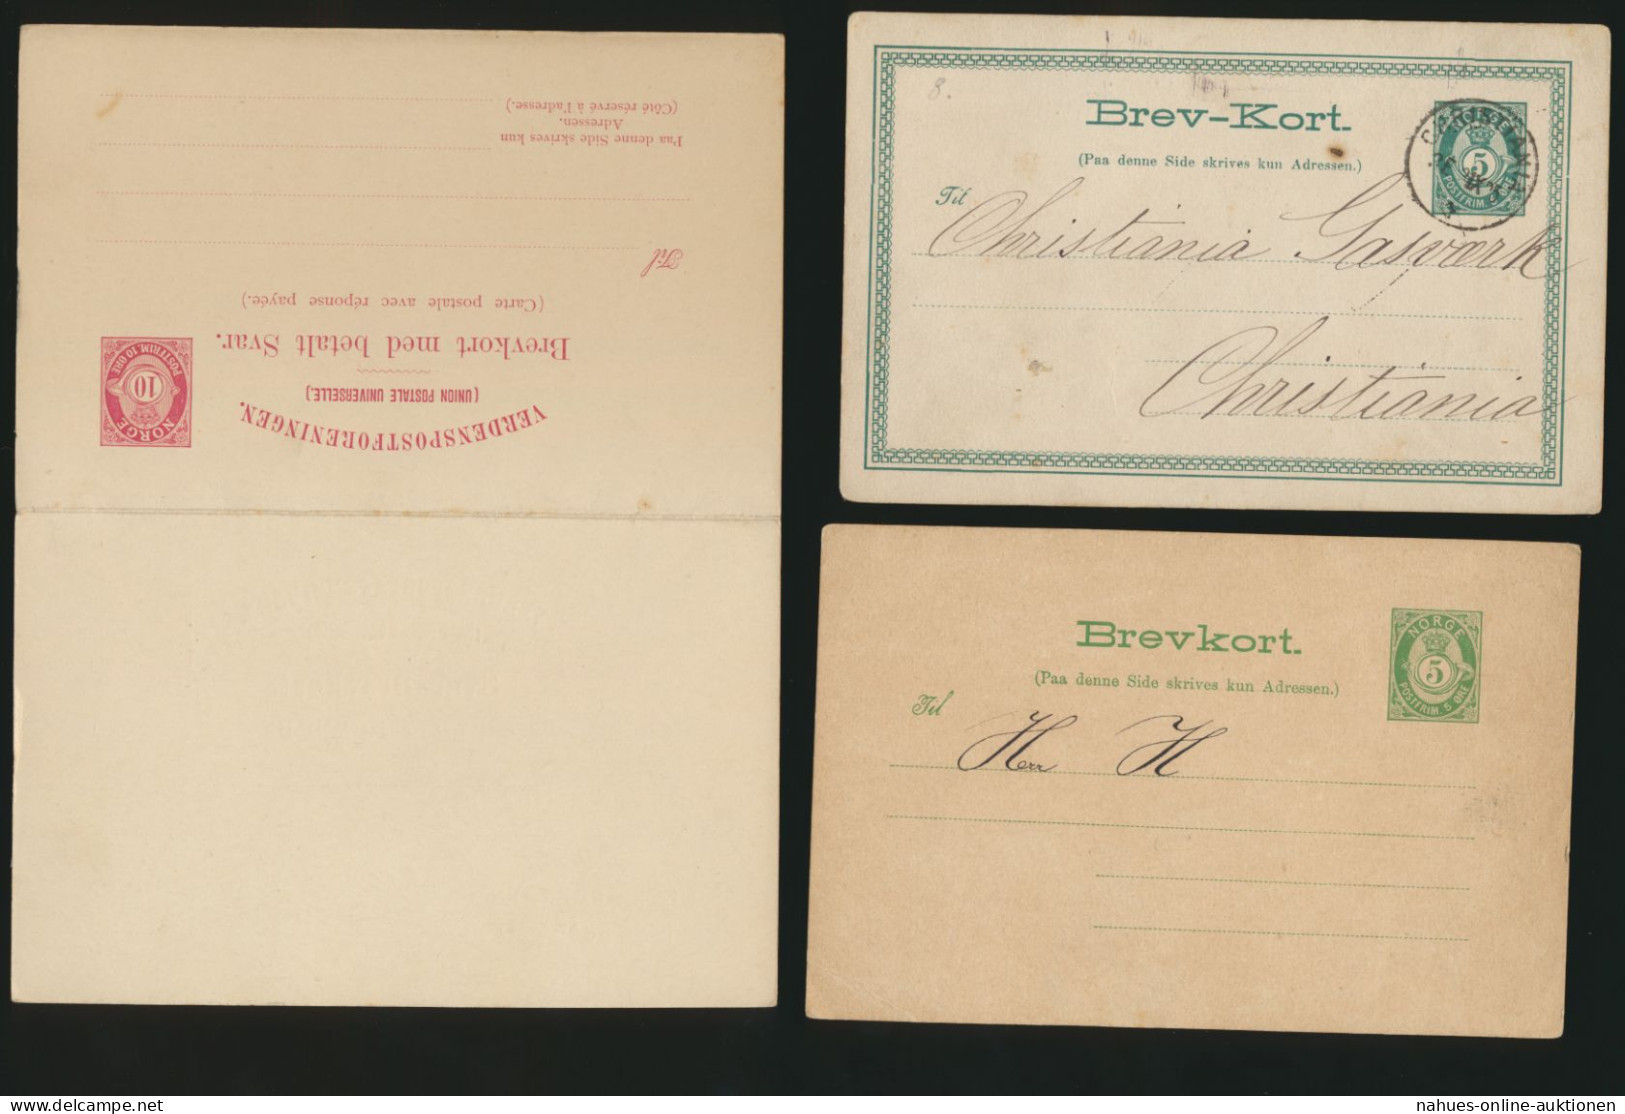 VERDENSPOSTFORENINGEN.
(UNION POSTALE UNIVERSELLE.)
Brevkort med betalt Svar.
(Carte postale avec réponse payée.)
NORGE
10
POSTFRIM 10 ØRE
Til
Paa denne Side skrives kun
Adressen.
(Côté réservé à l'adresse.)
8.
Brev-Kort.
(Paa denne Side skrives kun Adressen.)
CHRISTIANIA
5
POSTFRIM. 5 ØRE
Til Christiania Gasværk
Christiania
Brevkort.
(Paa denne Side skrives kun Adressen.)
NORGE
5
POSTFRIM. 5 ØRE
Til
Herr H
nahues-online-auktionen